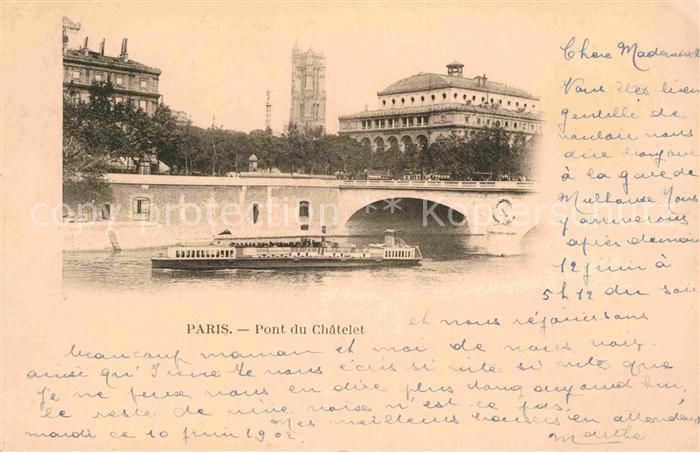 Chère Mademoiselle
Vous êtes bien
gentille de
vouloir nous
dire bonjour
à la gare de
Mulhouse. Nous
y arriverons
après demain
12 juin à
5 h 12 du soir
et nous réjouissons
PARIS. — Pont du Châtelet
beaucoup maman et moi de vous voir
ainsi qu'Irène. Je vous écris si vite si vite que
je ne peux vous en dire plus long aujourd'hui,
le reste de vive voix n'est ce pas.
Mes meilleurs baisers en attendant
mardi ce 10 juin 1902
Marthe
copyright protection Kopierschutz